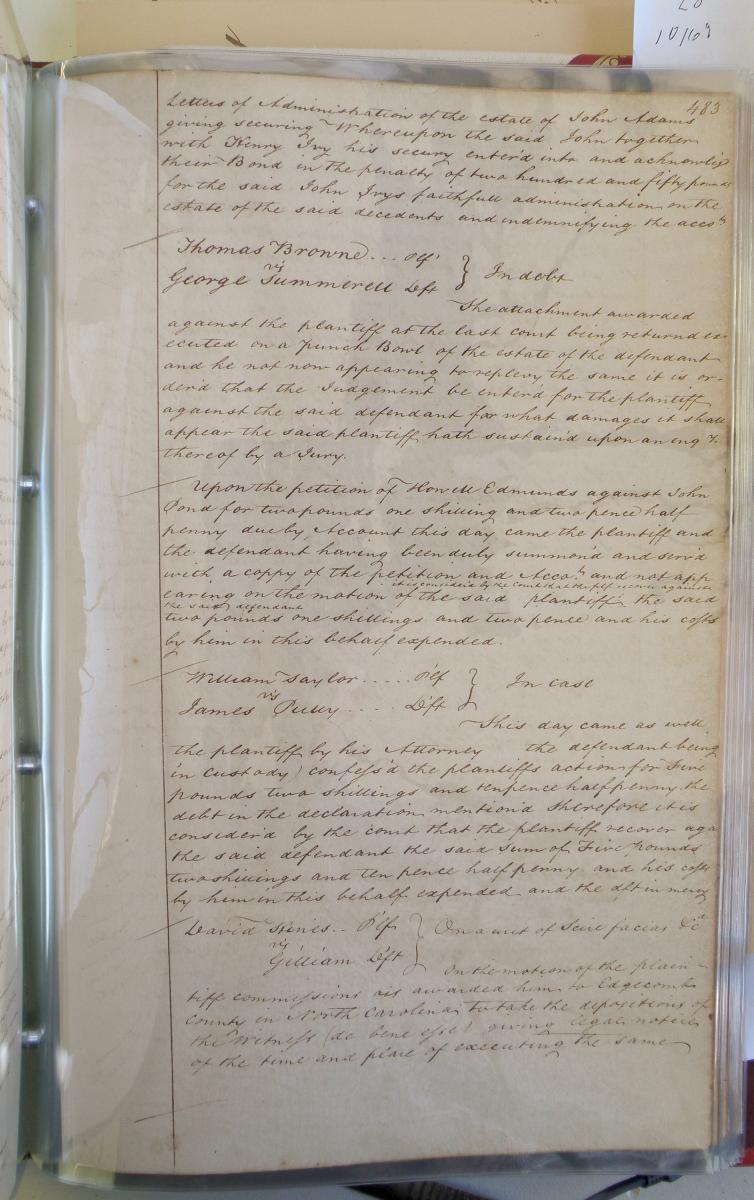 10/69
483
Letters of Administration of the estate of John Adams
giving securing Whereupon the said John together
with Henry Ivy his security enter'd into and acknowlig'd
their Bond in the penalty of two hundred and fifty pounds
for the said John Ivys faithfull administration on the
estate of the said decedents and indemnifying the acco.ts
Thomas Browne... Plf'
vs
George Summerell Dft } In debt
The attachment awarded
against the plantiff at the last court being returnd ex-
ecuted on a Punch Bowl of the estate of the defendant
and he not now appearing to replevy the same it is or-
der'd that the Judgement be enter'd for the plantiff
against the said defendant for what damages it shall
appear the said plantiff hath sustain'd upon an enq.y
thereof by a Jury.
Upon the petition of Howell Edmunds against John
Pond for two pounds one shilling and two pence half
penny due by Account this day came the plantiff and
the defendant having been duly summon'd and serv'd
with a coppy of the petition and Acco.t and not app
it is consider'd by the Court that the plf recover against
earing on the motion of the said plantiff the said
the said defendant
two pounds one shillings and two pence and his costs
by him in this behalf expended.
William Taylor..... Plf
vs
James Pully.... Dft } In case
This day came as well
the plantiff by his Attorney the defendant being
in custody) confess'd the plantiffs action for Five
pounds two shillings and tenpence halfpenny the
debt in the declaration mention'd therefore it is
consider'd by the court that the plantiff recover aga
the said defendant the said Sum of Five pounds
two shillings and ten pence half penny and his costs
by him in this behalf expended and the dft in mercy
David Hines.. Plf
vs
Gilliam Dft } On a writ of Scire facias &c
On the motion of the plain-
tiff commissions ais awarded him to Edgecomb
County in North Carolina to take the depositions of
the Witness (de bene esse) giving legal notice
of the time and place of executing the same